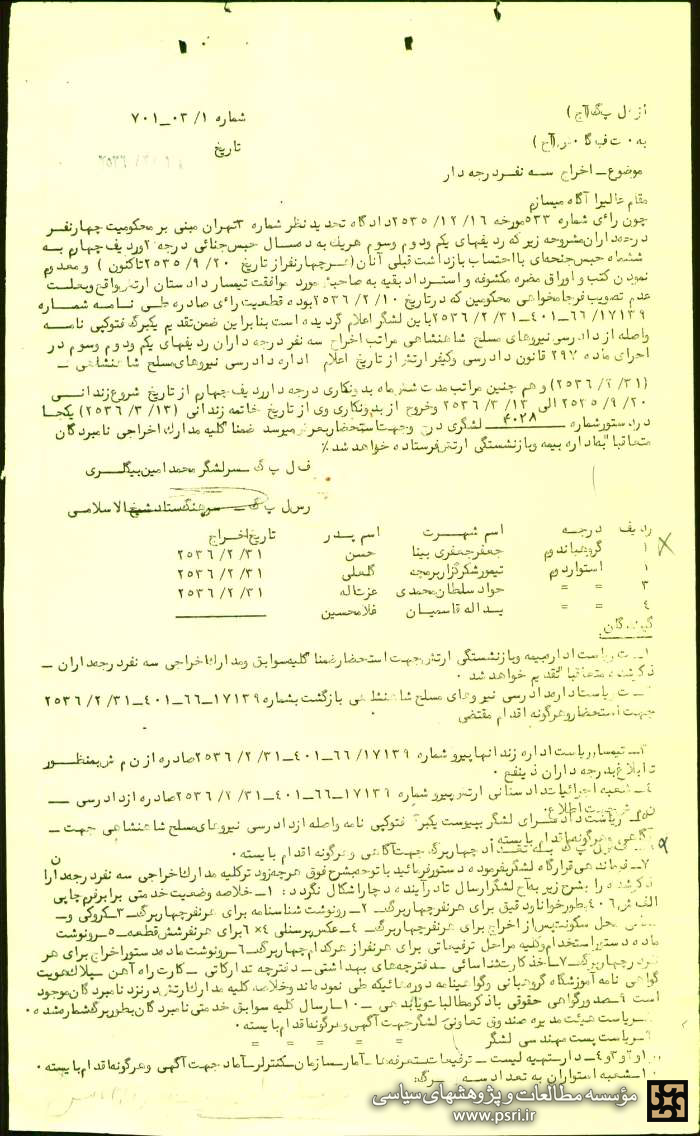 شماره ۷۰۱-۰۳/۱
به
تاریخ
موضوع - اخراج سه نفر درجه دار
مقام عالیرا آگاه میسازم
چون رای شماره ۵۳۳ مورخه ۲۵۳۵/۱۲/۱۶ دادگاه تجدید نظر شماره ۳ تهران مبنی بر محکومیت چهارنفر
درجه داران مشروحه زیر که ردیفهای یکم و دوم و سوم هر یک به ده سال حبس جنائی درجه ۲ و ردیف چهارم به
ششماه حبس جنحه‌ای با احتساب بازداشت قبلی آنان (هر چهارنفر از تاریخ ۲۵۳۵/۹/۲۰ تاکنون ) و معدوم
نمودن کتب و اوراق مضره مکشوفه و استرداد بقیه به صاحبش مورد موافقت تیمسار دادستان ارتش واقع و بعلت
عدم تصویب فرجامخواهی محکومین که در تاریخ ۲۵۳۶/۲/۱۰ بوده قطعیت رای صادره طی نامه شماره
۱۷۱۳۹/۶۶-۴۰۱-۲۵۳۶/۲/۳۱ باین لشگر اعلام گردیده است بنابراین ضمن تقدیم یکبرگ فتوکپی نامه
واصله از دادرسی نیروهای مسلح شاهنشاهی مراتب اخراج سه نفر درجه داران ردیفهای یکم و دوم و سوم در
اجرای ماده ۲۹۷ قانون دادرسی و کیفر ارتش از تاریخ اعلام اداره دادرسی نیروهای مسلح شاهنشاهی -
(۲۵۳۶/۲/۳۱) و هم چنین مراتب مدت ششماه بدونکاری درجه دار ردیف چهارم از تاریخ شروع زندانی
۲۵۳۵/۹/۲۰ الی ۲۵۳۶/۳/۱۲ و خروج از بدونکاری وی از تاریخ خاتمه زندانی (۲۵۳۶/۳/۱۳) یکجا
در دستور شماره ۴۰۲۸ لشگری درج و جهت استحضار بعرض میرسد ضمنا کلیه مدارک اخراجی نامبردگان
متعاقبا به اداره بیمه و بازنشستگی ارتش فرستاده خواهد شد٪
سرلشگر محمد امین بیگلری
سرهنگ ستاد شیخ الاسلامی
ردیف درجه اسم شهرت اسم پدر تاریخ اخراج
۱ گروهبان دوم جعفر جعفری بینا حسن ۲۵۳۶/۲/۳۱
۱ استوار دوم تیمور شکرگزار برمچه گلعلی ۲۵۳۶/۲/۳۱
۳ = = جواد سلطان محمدی عزت‌اله ۲۵۳۶/۲/۳۱
۴ = = یداله قاسمیان غلامحسین
گیرندگان:
ریاست اداره بیمه و بازنشستگی ارتش جهت استحضار ضمنا کلیه سوابق و مدارک اخراجی سه نفر درجه داران -
ذکر شده متعاقبا تقدیم خواهد شد .
ریاست اداره دادرسی نیروهای مسلح شاهنشاهی بازگشت بشماره ۱۷۱۳۹-۶۶-۴۰۱-۲۵۳۶/۲/۳۱
جهت استحضار و هرگونه اقدام مقتضی
۳- تیمسار ریاست اداره زندانها پیرو شماره ۱۷۱۳۹/۶۶-۴۰۱-۲۵۳۶/۲/۳۱ صادره از ن م ش بمنظور
ابلاغ بدرجه داران ذینفع .
۴- شعبه اجرائیات دادستانی ارتش پیرو شماره ۱۷۱۳۹-۶۶-۴۰۱-۲۵۳۶/۲/۳۱ صادره از دادرسی -
جهت اطلاع
لشگر بپیوست یکبرگ فتوکپی نامه واصله از دادرسی نیروهای مسلح شاهنشاهی جهت -
آگاهی و هرگونه اقدام بایسته
چهاربرگ جهت آگاهی و هرگونه اقدام بایسته .
۷- فرماندهی قرارگاه لشگر بفرموده دستور فرمائید با توجه بشرح فوق هرچه زودتر کلیه مدارک اخراجی سه نفر درجه دار
ذکر شده را بشرح زیر به لشگر ارسال تا در آینده دچار اشکال نگردد : ۱- خلاصه وضعیت خدمتی برابر فرم چاپی
بطور خوانا و دقیق برای هر نفر چهاربرگ ۲- رونوشت شناسنامه برای هر نفر چهاربرگ ۳- کروکی و-
محل سکونت پس از اخراج برای هر نفر چهاربرگ ۴- عکس پرسنلی ۴×۶ برای هر نفر شش قطعه ۵- رونوشت
ماده دستور استخدام و کلیه مراحل ترفیعاتی برای هر نفر از هر کدام چهاربرگ ۶- رونوشت ماده دستور اخراج برای هر
نفر چهاربرگ ۷- اخذ کارت شناسائی - دفترچه‌های بهداشتی - دفترچه تدارکاتی - کارت راه آهن - پلاک هویت
گواهی نامه آموزشگاه گروهبانی و گواهینامه دوره‌هائیکه طی نموده‌اند و خلاصه کلیه مدارک ارتشی در نزد نامبردگان موجود
است ۹- صدور گواهی حقوقی با ذکر مطالبات و یا بدهی - ۱۰- ارسال کلیه سوابق خدمتی نامبردگان بطور برگ شماره شده .
ریاست هیئت مدیره صندوق تعاونی لشگر جهت آگاهی و هرگونه اقدام بایسته .
ریاست پست مهندسی لشگر = = = = =
دایره تهیه لیست - ترفیعات - تعرفه‌ها - آمار - سازمان - کنترلر - آماد جهت آگهی و هرگونه اقدام بایسته .
شعبه استواران به تعداد سه برگ
مؤسسه مطالعات و پژوهشهای سیاسی
www.psri.ir